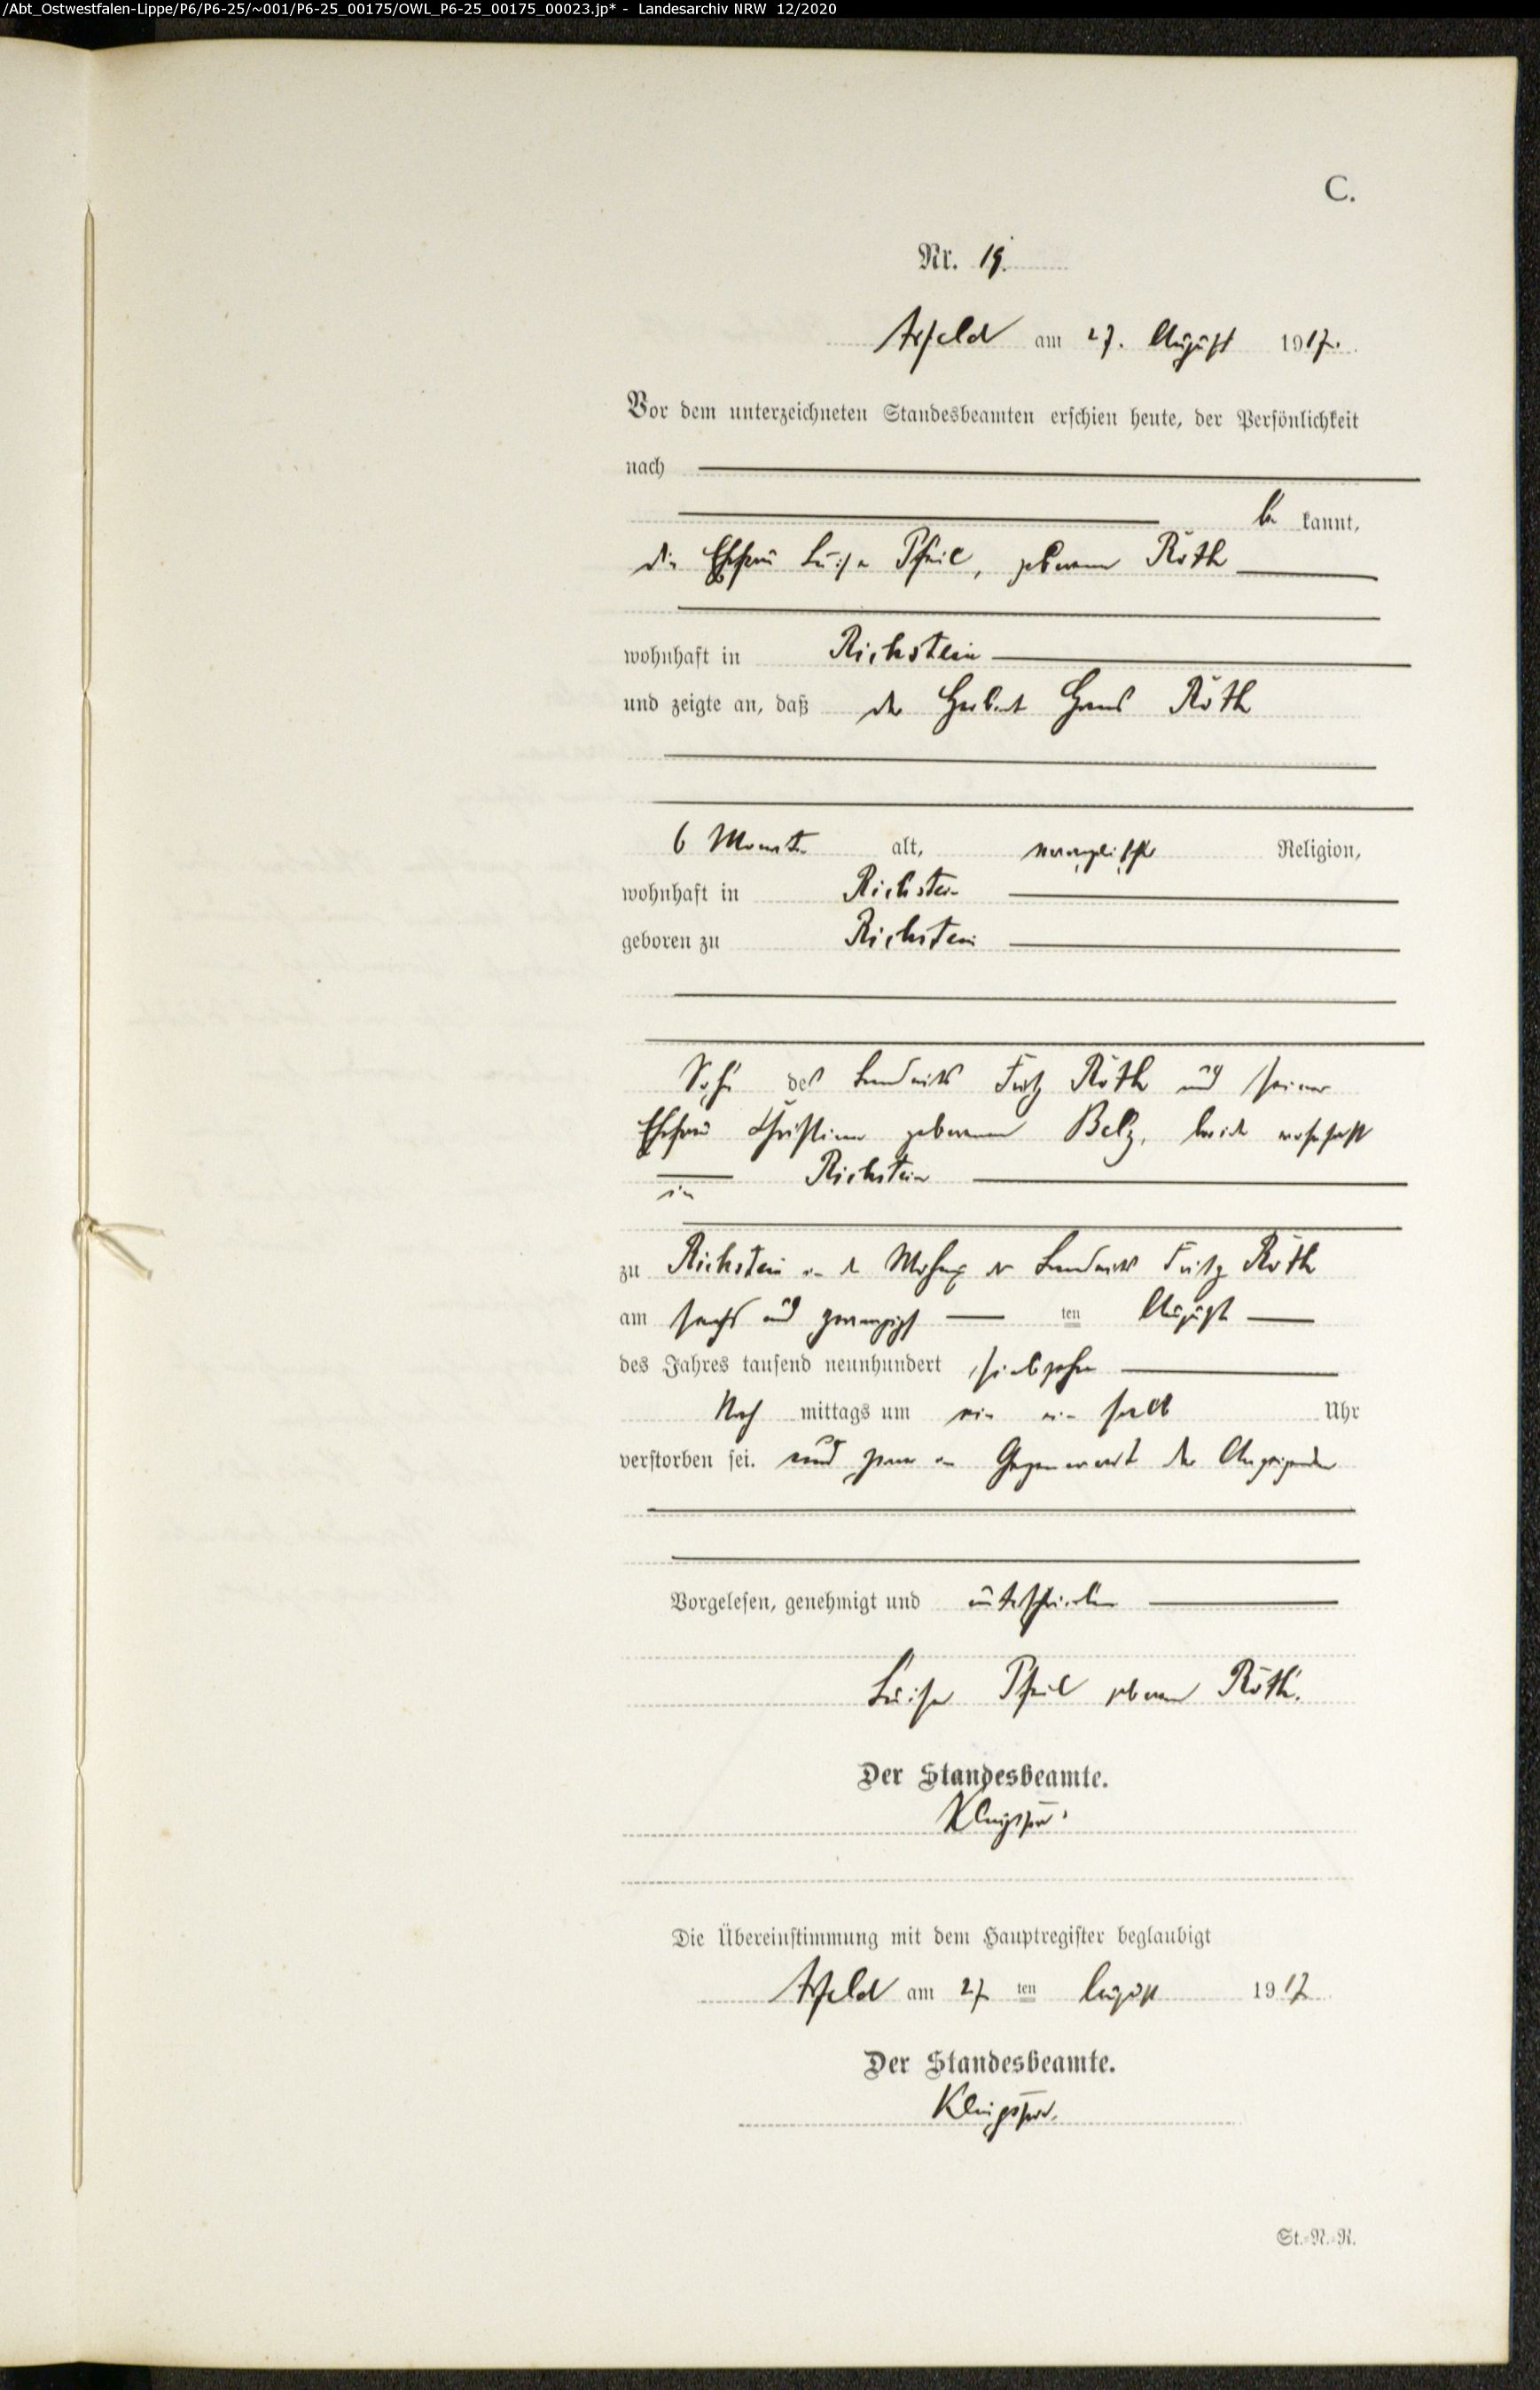 /Abt_Ostwestfalen-Lippe/P6/P6-25/~001/P6-25_00175/OWL_P6-25_00175_00023.jp* - Landesarchiv NRW 12/2020
C.
Nr. 19.
Arfeld am 27. August 1917.
Vor dem unterzeichneten Standesbeamten erschien heute, der Persönlichkeit
nach
be kannt,
die Ehefrau Luise Pfeil, geborene Röth
wohnhaft in Richstein
und zeigte an, daß der Herbert Hans Röth
6 Monate alt, evangelischer Religion,
wohnhaft in Richstein
geboren zu Richstein
Sohn des Landwirts Fritz Röth und seiner
Ehefrau Christine geborenen Belz, beide wohnhaft
in Richstein
zu Richstein in der Wohnung des Landwirts Fritz Röth
am sechs und zwanzigsten August
des Jahres tausend neunhundert siebzehn
Nach mittags um ein ein halb Uhr
verstorben sei. und zwar in Gegenwart der Anzeigenden
Vorgelesen, genehmigt und unterschrieben
Luise Pfeil geborene Röth.
Der Standesbeamte.
Klingspor
Die Übereinstimmung mit dem Hauptregister beglaubigt
Arfeld am 27 ten August 1917
Der Standesbeamte.
Klingspor.
St.-N.-R.